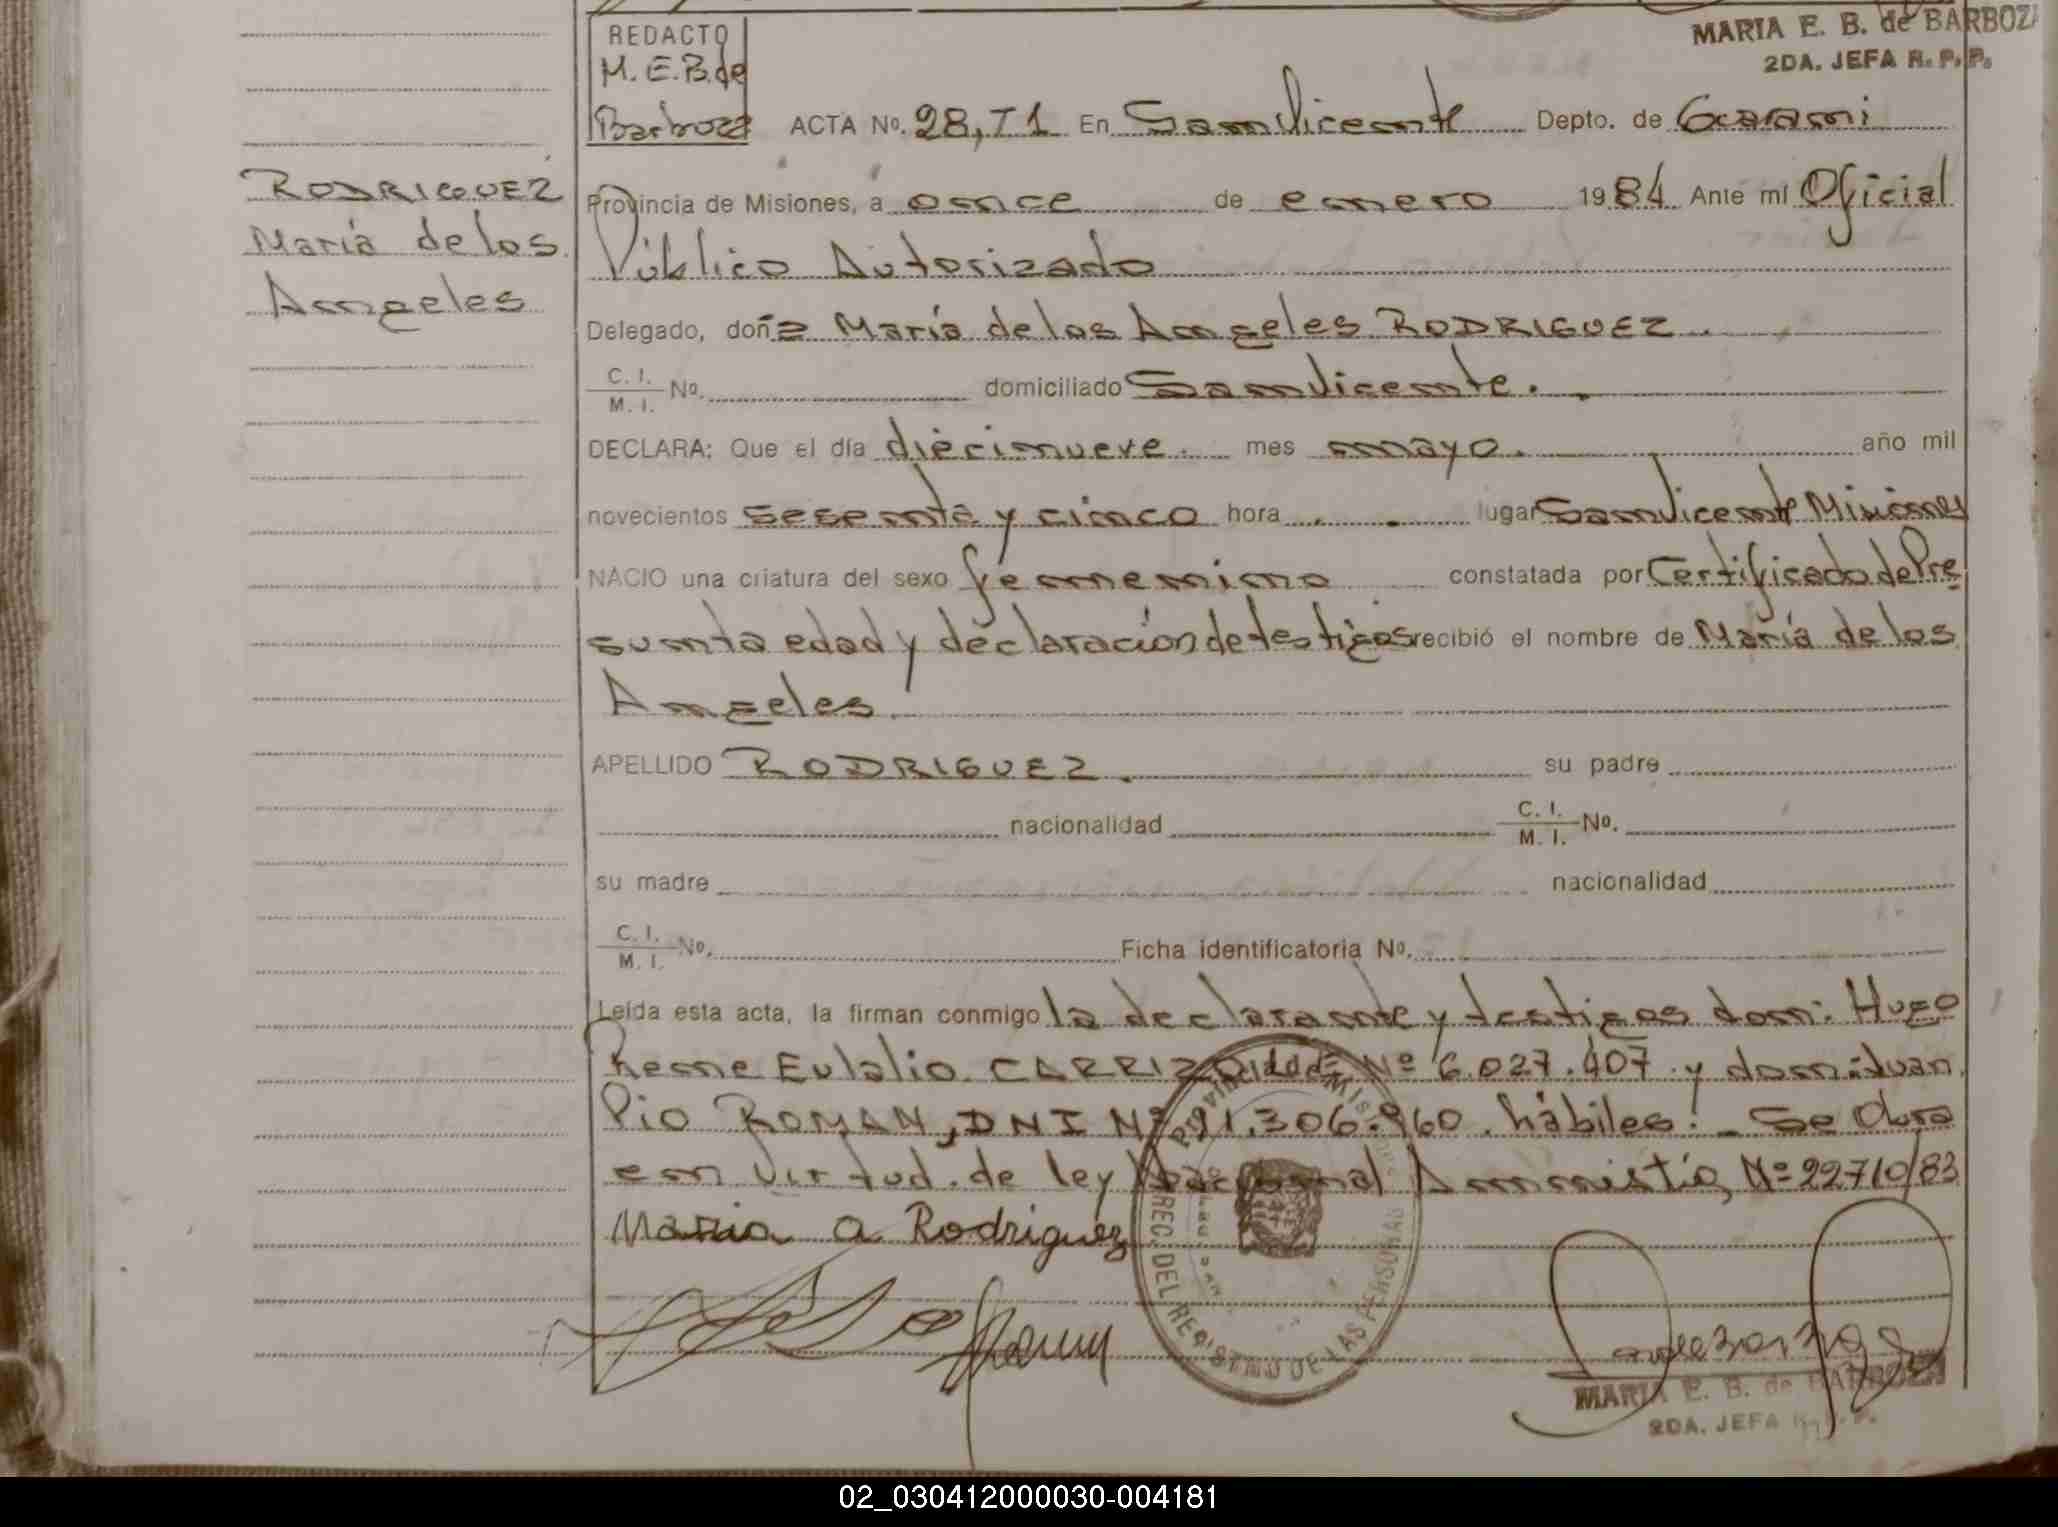 MARIA E. B. de BARBOZA
2DA. JEFA R. P. P.
REDACTO
M. E. B. de
Barboza
ACTA No. 28, T1 En San Vicente Depto. de Guarani
Provincia de Misiones, a once de enero 1984 Ante mí Oficial
Público Autorizado
Delegado, doña María de los Angeles RODRIGUEZ
C. I. M. I. No. domiciliado San Vicente.
DECLARA: Que el día diecinueve. mes mayo. año mil
novecientos sesenta y cinco hora lugar San Vicente Misiones
NACIO una criatura del sexo femenino constatada por Certificado de Pre
sunta edad y declaración de testigos recibió el nombre de María de los
Angeles
APELLIDO RODRIGUEZ. su padre
nacionalidad C. I. M. I. No.
su madre nacionalidad
C. I. M. I. No. Ficha identificatoria No.
Leída esta acta, la firman conmigo la declarante y testigos don: Hugo
Rene Eulalio CARRIZO Nº 6.027.407. y don: Juan
Pio ROMAN, DNI Nº 91.306.960. hábiles. - Se Obra
en virtud de ley Nacional Amnistía, Nº 22710/83
Maria a Rodriguez
MARIA E. B. de BARBOZA
2DA. JEFA R. P. P.
RODRIGUEZ
María de los
Angeles
DEL REGISTRO DE LAS PERSONAS
02_030412000030-004181